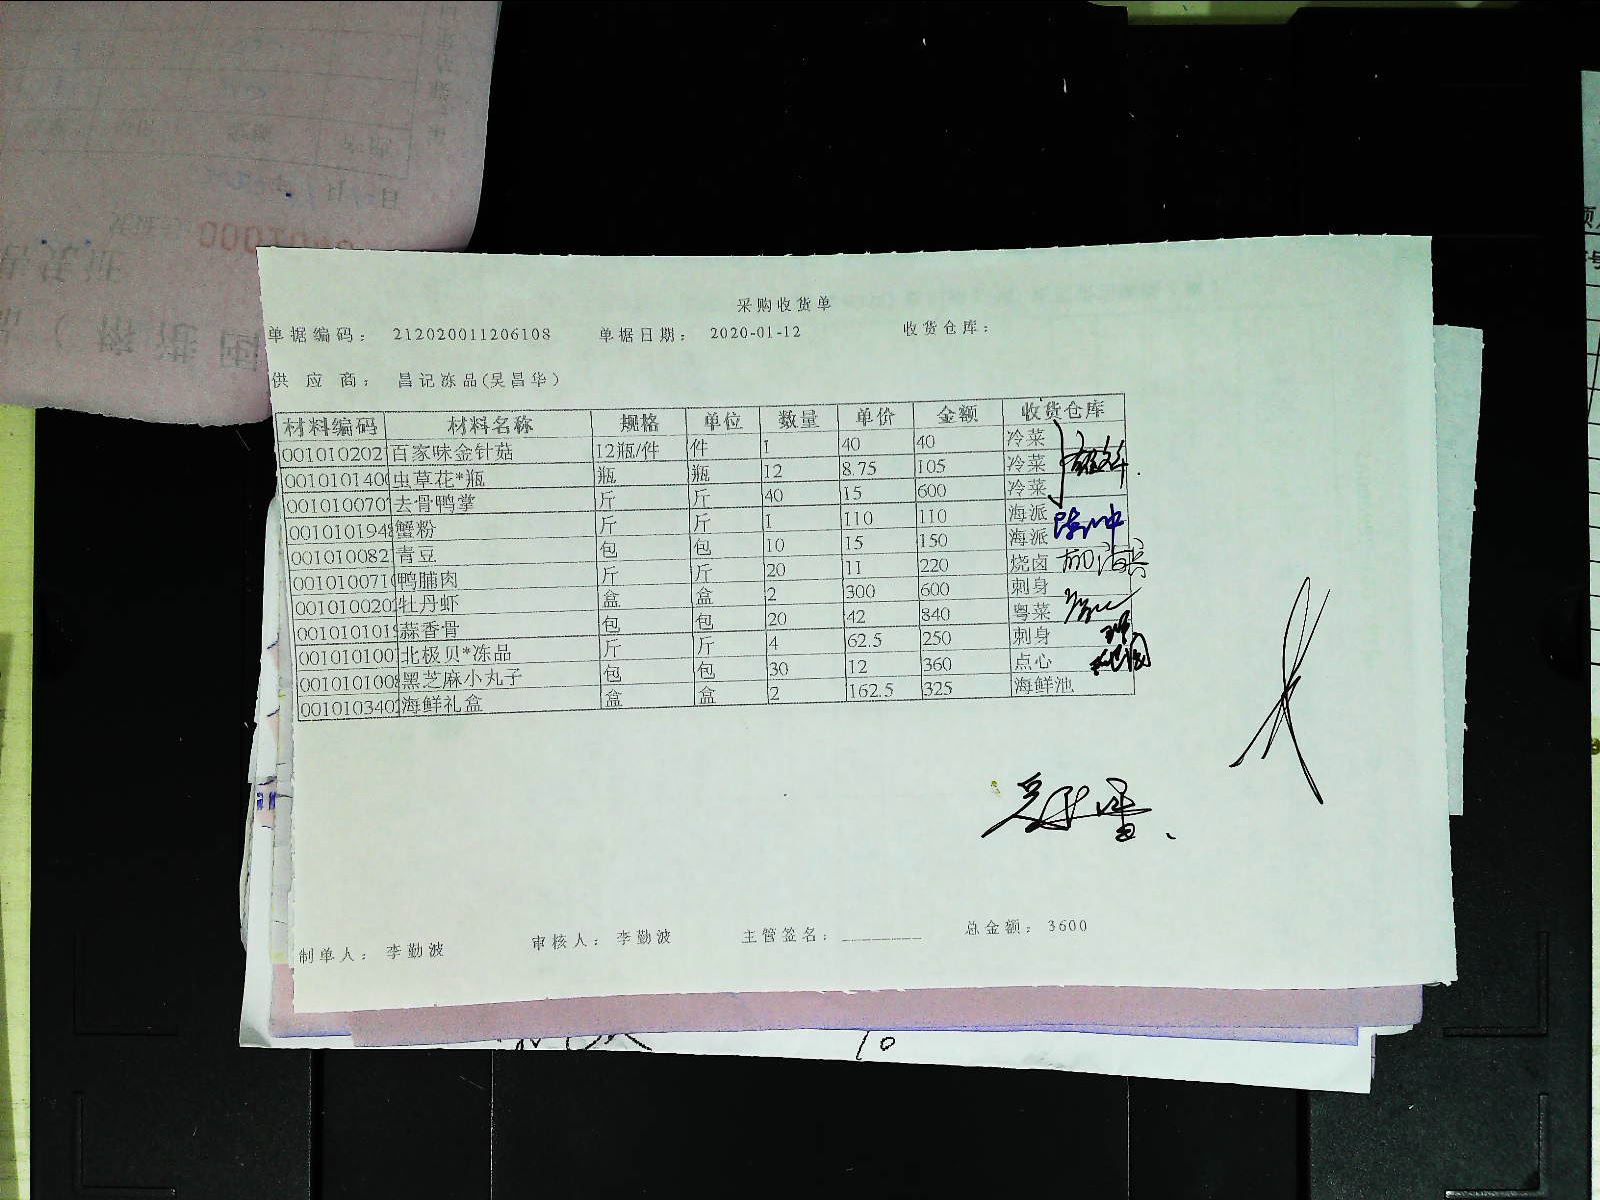 采购收货单
单据编码： 212020011206108 单据日期： 2020-01-12 收货仓库：
供 应 商： 昌记冻品(吴昌华)
材料编码 材料名称 规格 单位 数量 单价 金额 收货仓库
001010202 百家味金针菇 12瓶/件 件 1 40 40 冷菜
001010140 虫草花*瓶 瓶 瓶 12 8.75 105 冷菜
001010070 去骨鸭掌 斤 斤 40 15 600 冷菜
001010194 蟹粉 斤 斤 1 110 110 海派
001010082 青豆 包 包 10 15 150 海派
001010071 鸭脯肉 斤 斤 20 11 220 烧卤
001010020 牡丹虾 盒 盒 2 300 600 刺身
001010101 蒜香骨 包 包 20 42 840 粤菜
001010100 北极贝*冻品 斤 斤 4 62.5 250 刺身
001010100 黑芝麻小丸子 包 包 30 12 360 点心
001010340 海鲜礼盒 盒 盒 2 162.5 325 海鲜池
制单人： 李勤波 审核人： 李勤波 主管签名： ________ 总金额： 3600
10